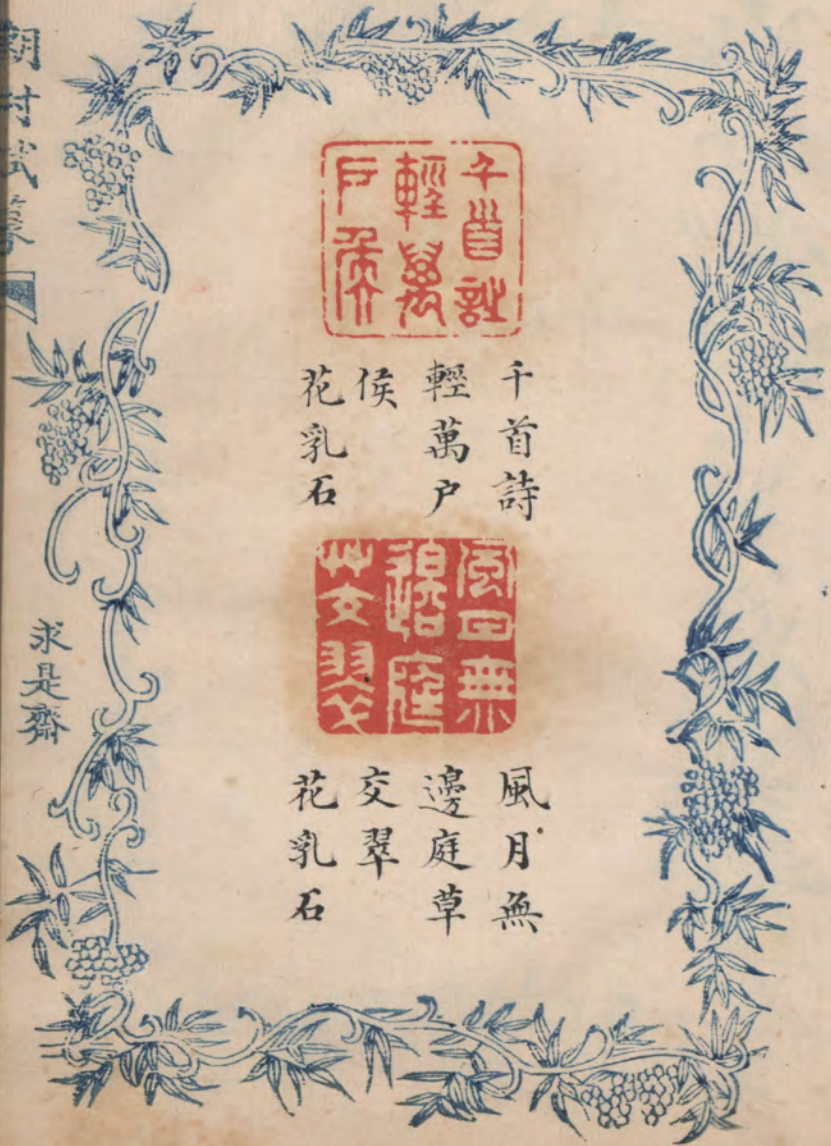 千首詩
輕萬戶
侯
千首詩
輕萬户
侯
花乳石
風月無
邊庭
艸交翠
風月無
邊庭草
交翠
花乳石
求是齋